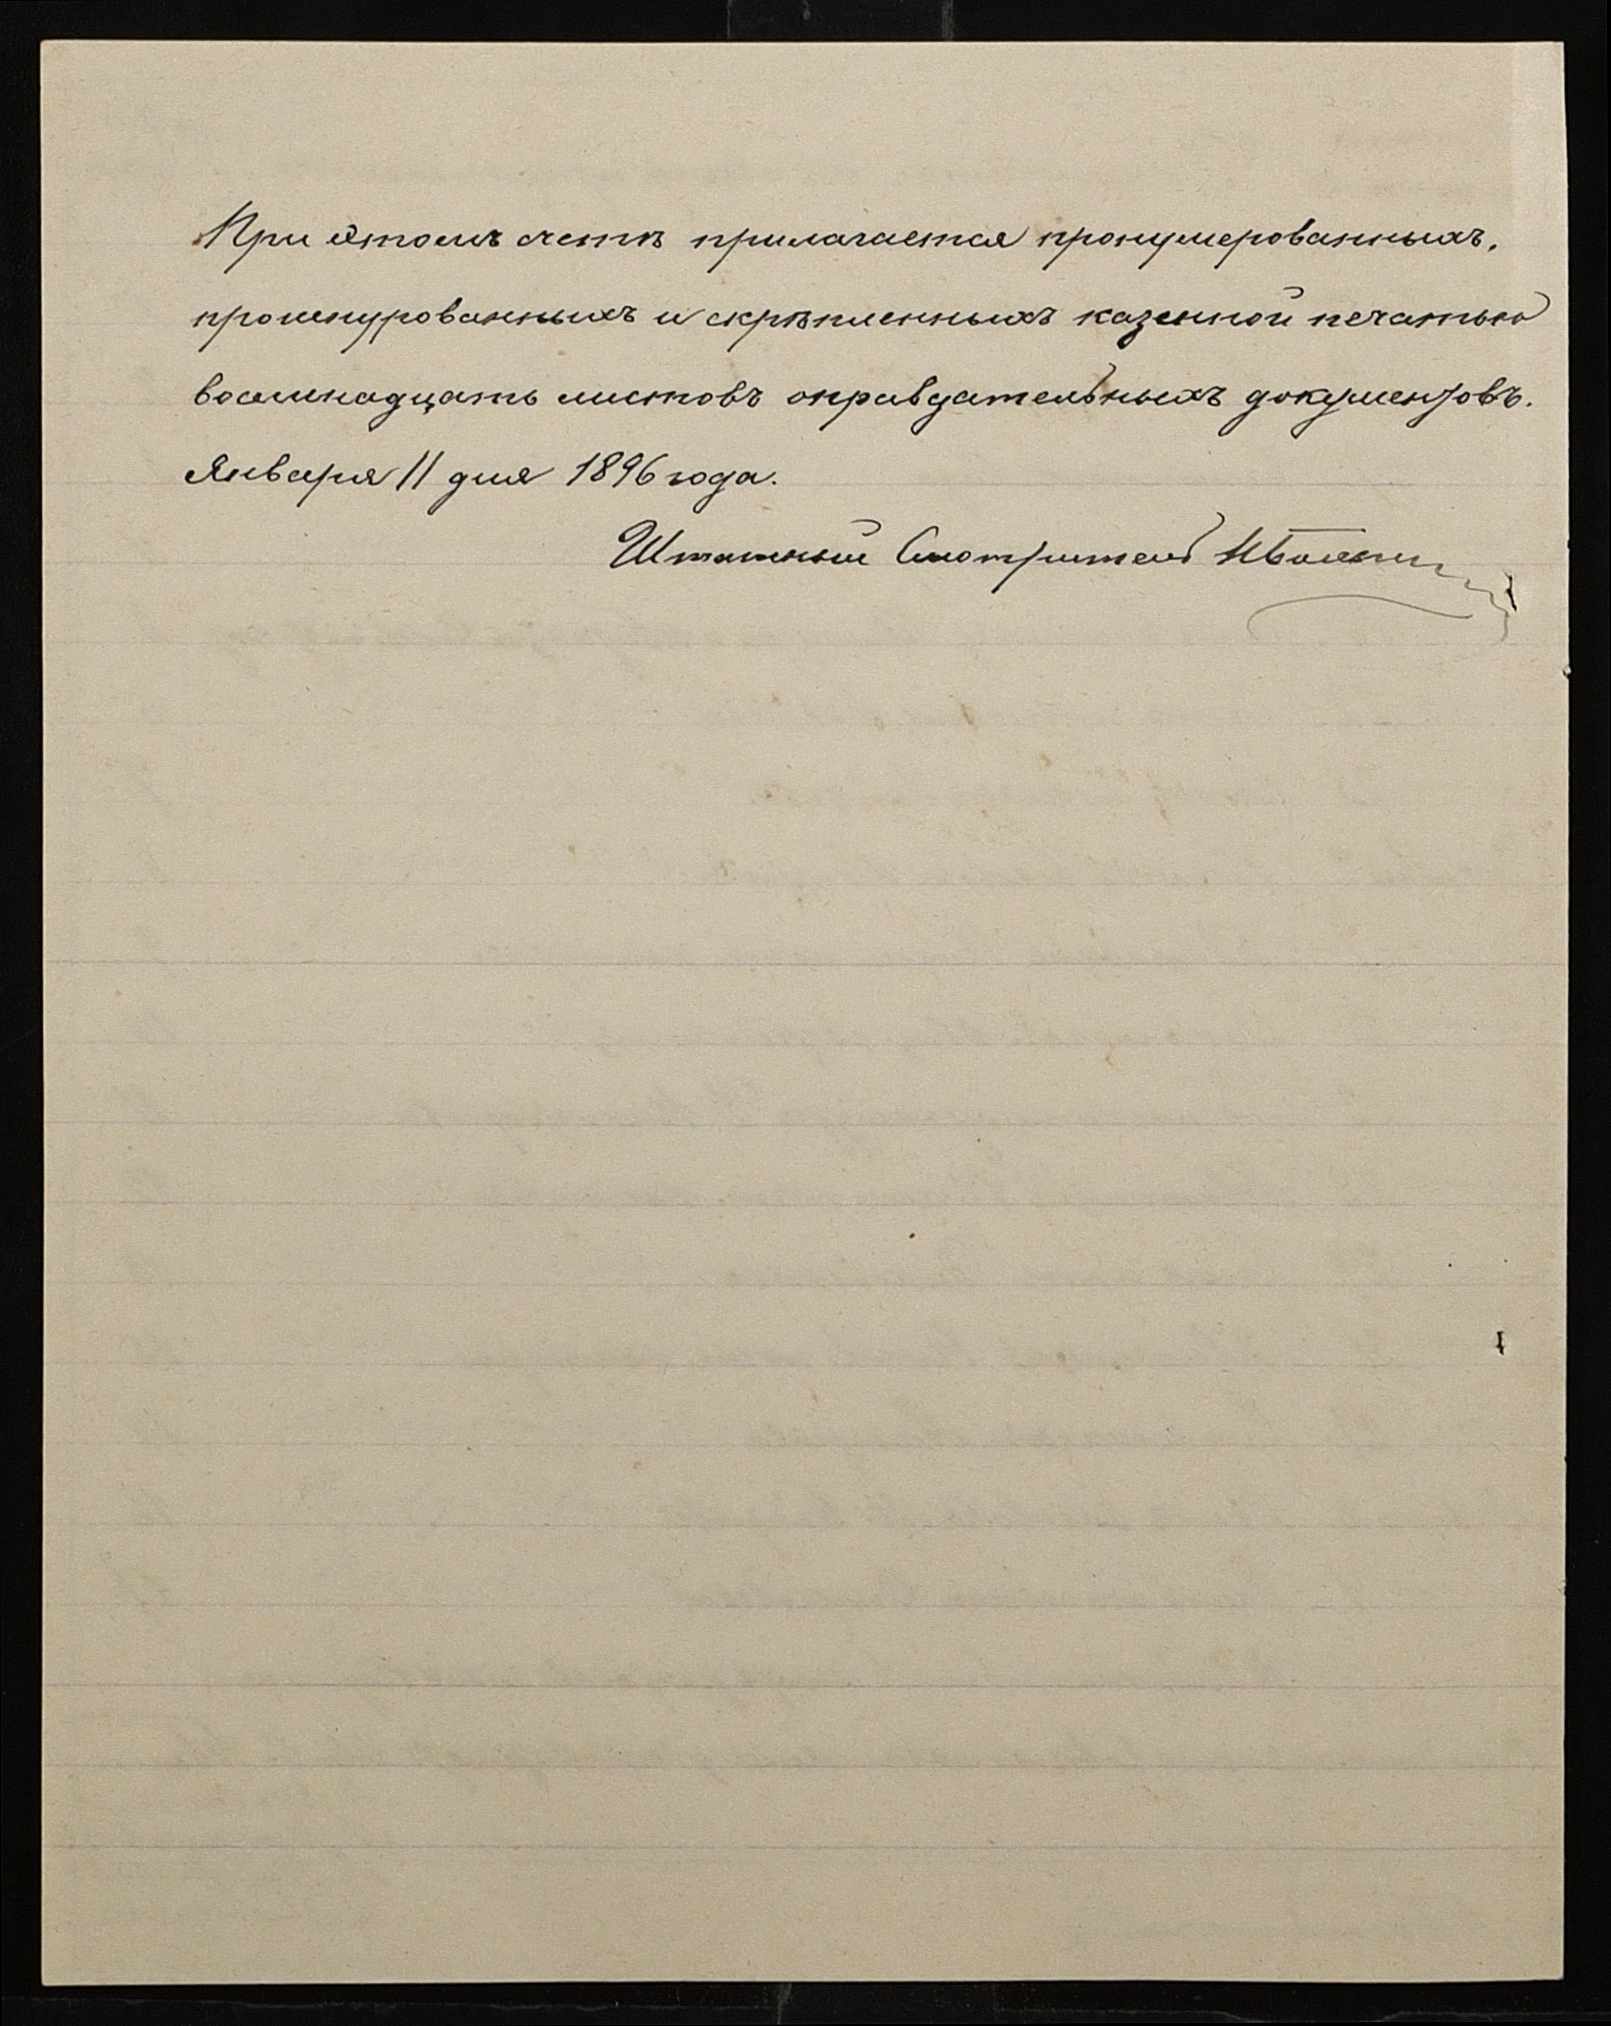 При этомъ счетѣ прилагается пронумерованныхъ,
прошнурованныхъ и скрѣпленныхъ казенной печатью
восемнадцать листовъ оправдательныхъ документовъ.
Января 11 дня 1896 года.
Штатный Смотритель